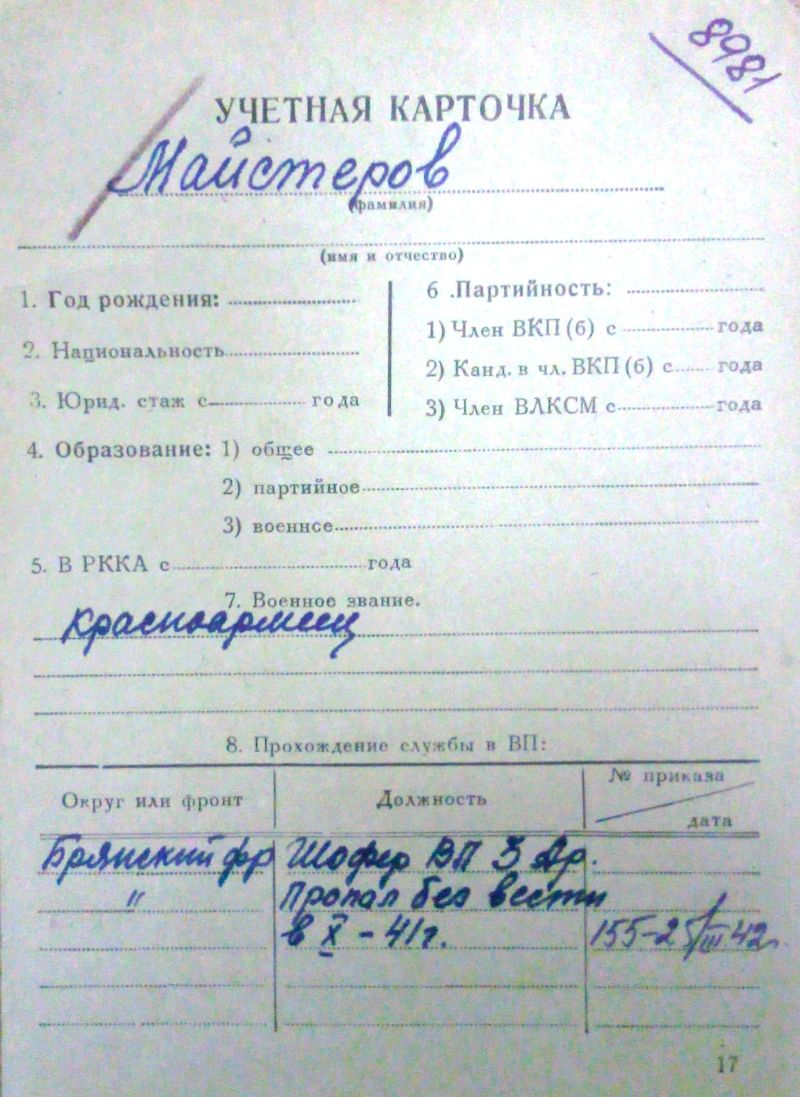 8981
УЧЕТНАЯ КАРТОЧКА
Майстеров
(фамилия)
(имя и отчество)
1. Год рождения:
2. Национальность
3. Юрид. стаж с года
6 .Партийность:
1) Член ВКП (б) с года
2) Канд. в чл. ВКП (б) с года
3) Член ВЛКСМ с года
4. Образование: 1) общее
2) партийное
3) военнсе
5. В РККА с года
7. Военное звание.
красноармеец
8. Прохождение службы в ВП:
Округ или фронт Должность № приказа дата
Брянский фр Шофер ВП 3 Ар.
" Пропал без вести
в X - 41 г. 155-25/III 42г.
17